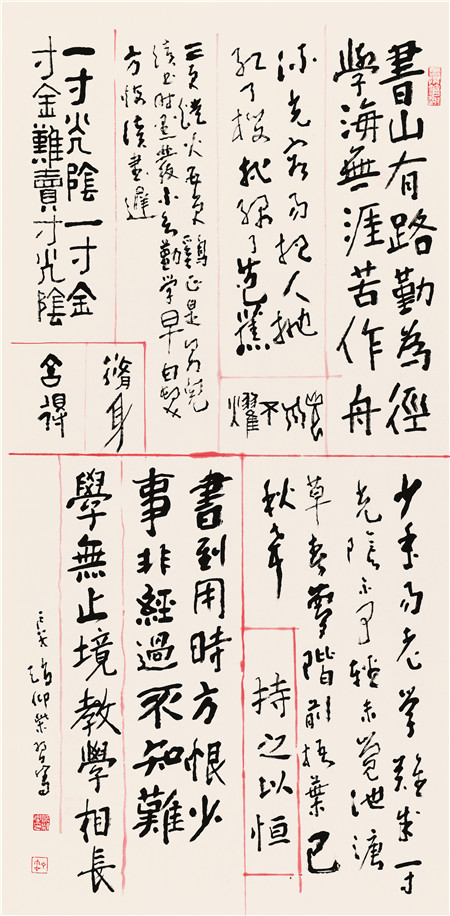 書山有路勤為徑
學海無涯苦作舟
流光容易把人抛
紅了櫻桃绿了芭蕉
三更燈火五更鷄正是男兒
讀書時黑髮不知勤學早白首
方悔讀書遲
一寸光陰一寸金
寸金難買寸光陰
光而不耀
脩身
舍得
少年易老學難成一寸
光陰不可輕未覺池塘
草春夢階前梧葉已
秋聲
持之以恒
書到用時方恨少
事非經過不知難
學無止境教學相長